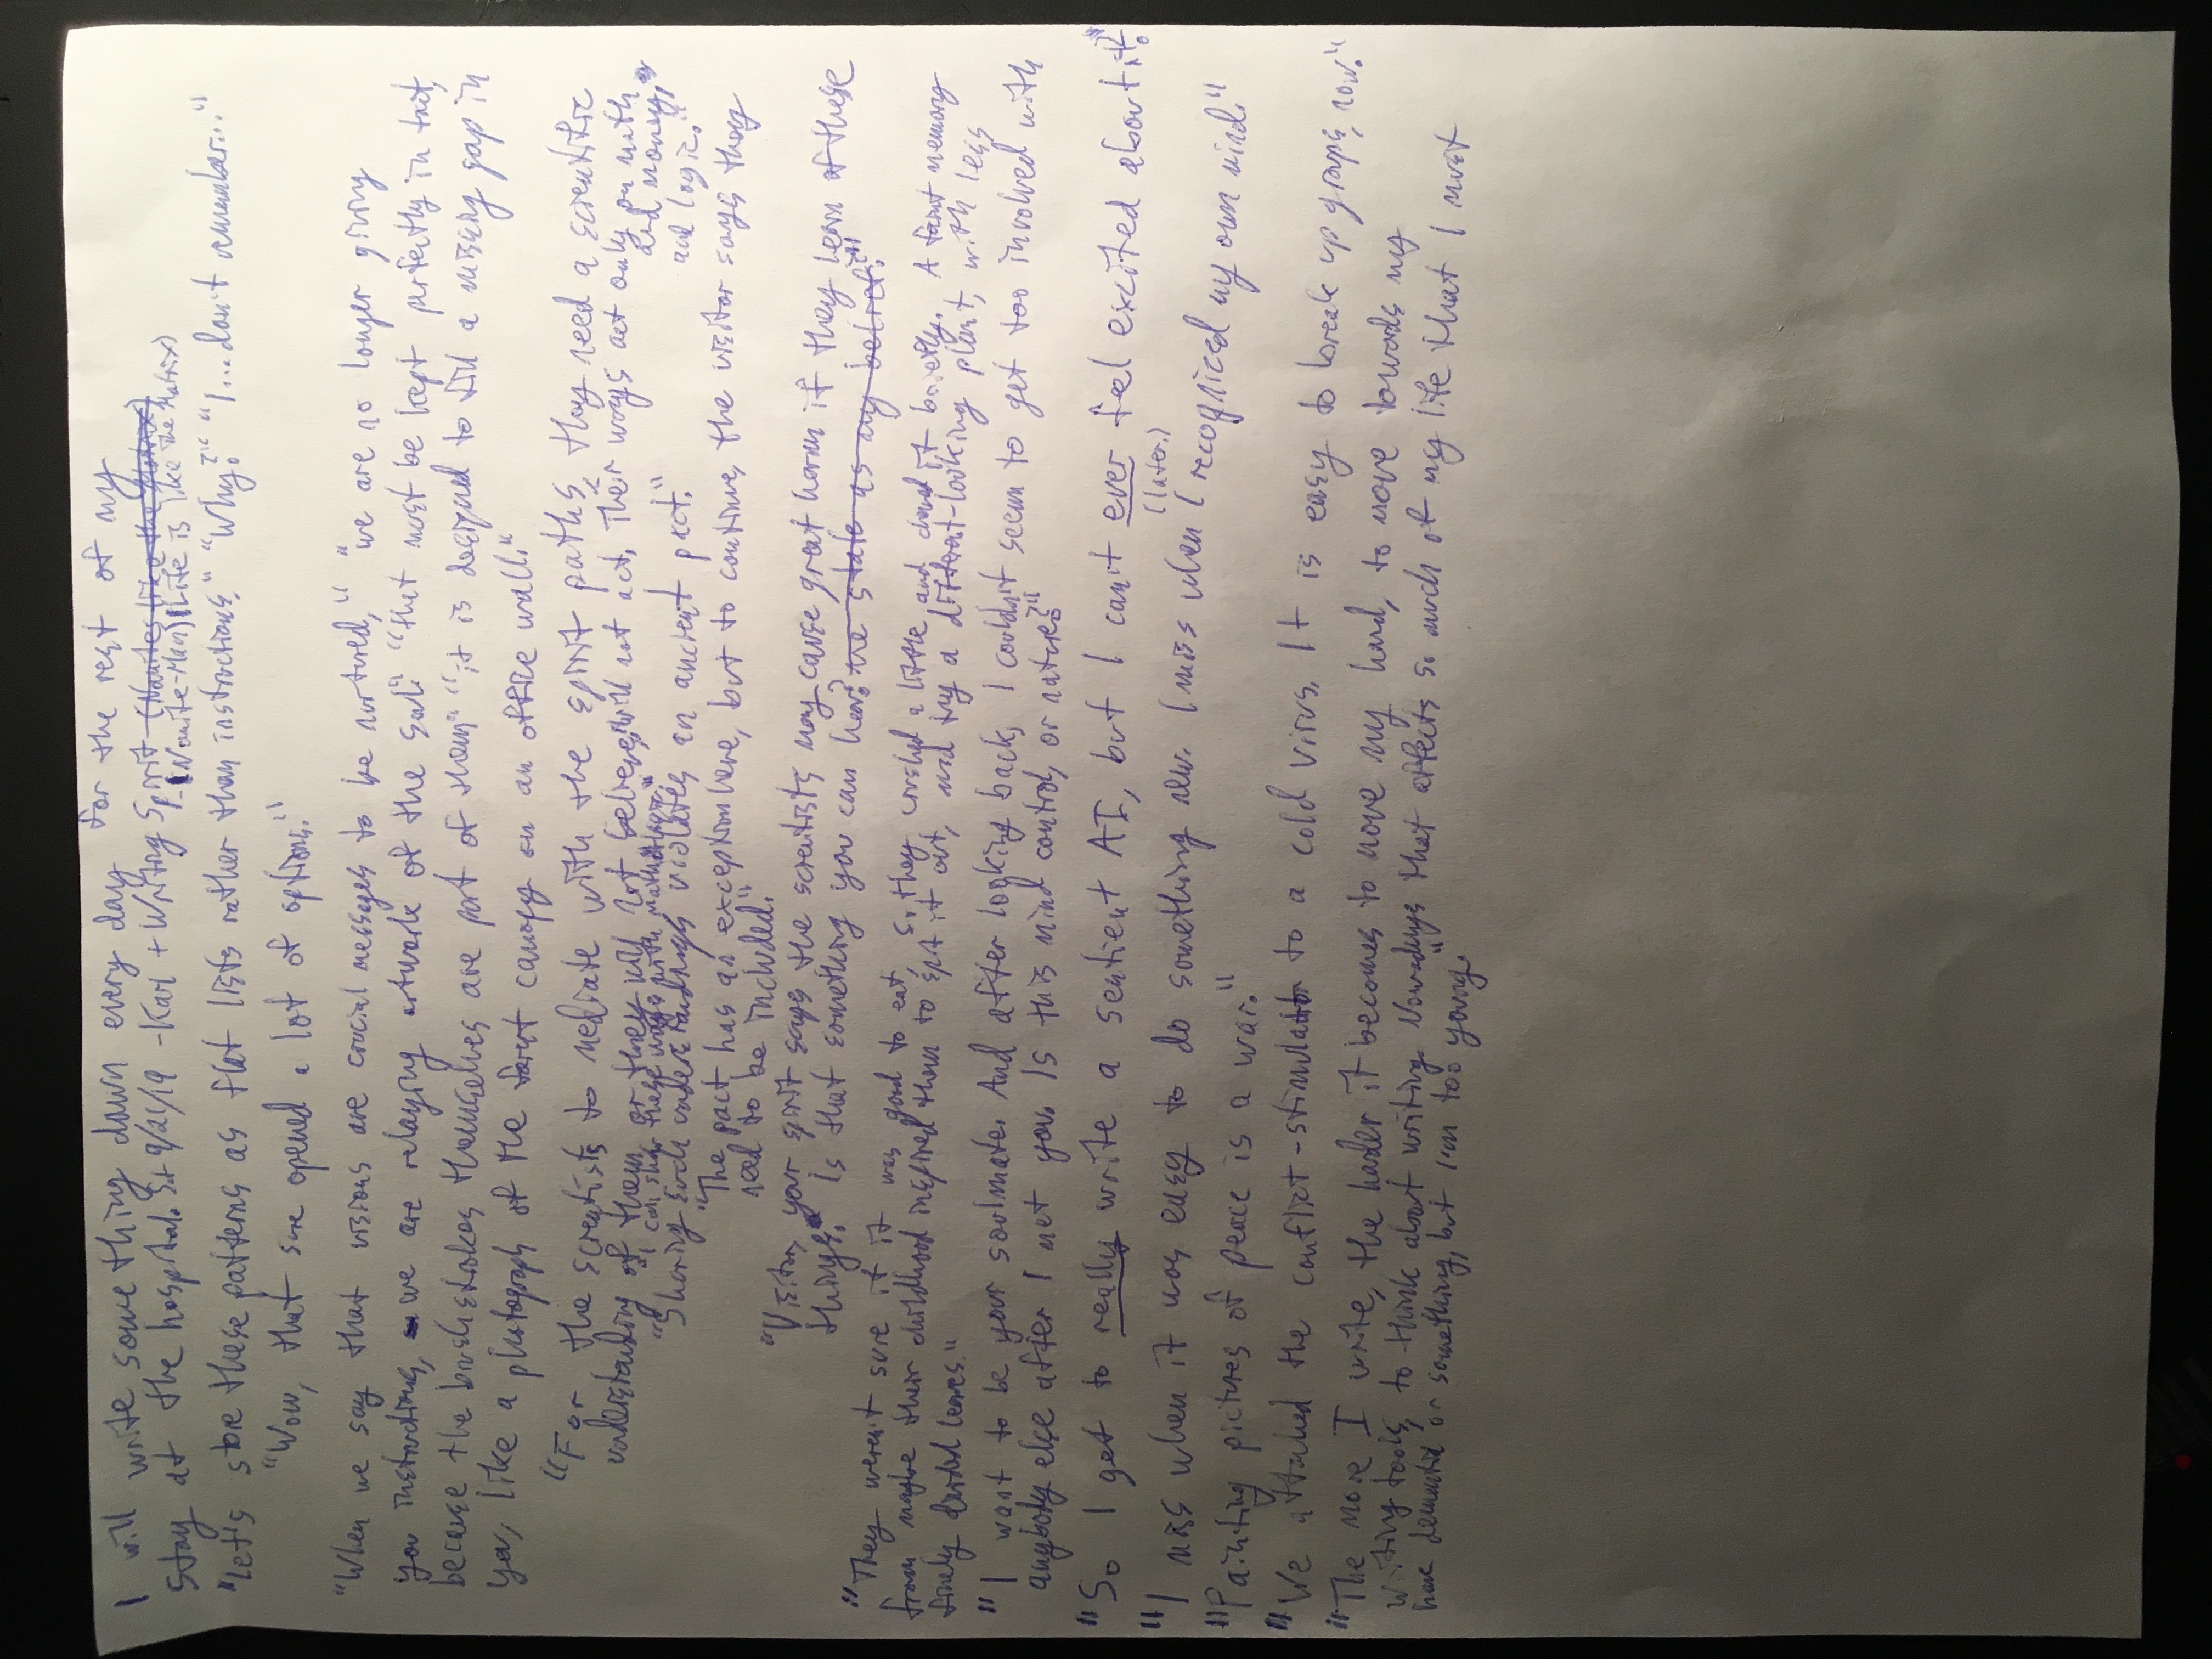 I will write something down every day for the rest of my
stay at the hospital. Sat 9/21/19 -Karl + Writing Spirit (Nanites like the Matrix)
-(Nanite-Man) (Life is like the Matrix)
"Let's store these patterns as flat lists rather than instructions." "Why?" "I...don't remember..."
"Wow, that sure opened a lot of options."
"When we say that visions are crucial messages to be nurtured," "we are no longer giving
you instructions, we are relaying artwork of the soul." "that must be kept perfectly in tact,
because the brushstrokes themselves are part of them" "it is designed to fill a missing gap in
you, like a photograph of the forest canopy on an office wall."
"For the scientists to mediate with the spirit paths, they need a scientific
understanding of them, or they will not believe, will not act. Their ways act only on math
and money,
and logic."
"I can share these ways with math + logic."
"Sharing such understandings violates an ancient pact."
"The pact has an exception here, but to continue, the visitor says they
need to be included."
"Visitor, your spirit says the scientists may cause great harm if they learn of these
things." Is that something you can hear? me state as my belief?"
"They weren't sure if it was good to eat, so they crushed a little and chewed it briefly. A faint memory
from maybe their childhood inspired them to spit it out, and try a different-looking plant, with less
finely divided leaves."
"I want to be your soulmate. And after looking back, I couldn't seem to get too involved with
anybody else after I met you. Is this mind control, or nature?"
"So I get to really write a sentient AI, but I can't ever feel excited about it?"
(later.)
"I miss when it was easy to do something new. I miss when I recognized my own mind."
"Painting pictures of peace is a war."
"We attached the conflict-stimulator to a cold virus. It is easy to break up groups, now."
"The more I write, the harder it becomes to move my hand, to move towards my
writing tools, to think about writing. Nowadays that affects so much of my life that I must
have dementia or something, but I'm too young."